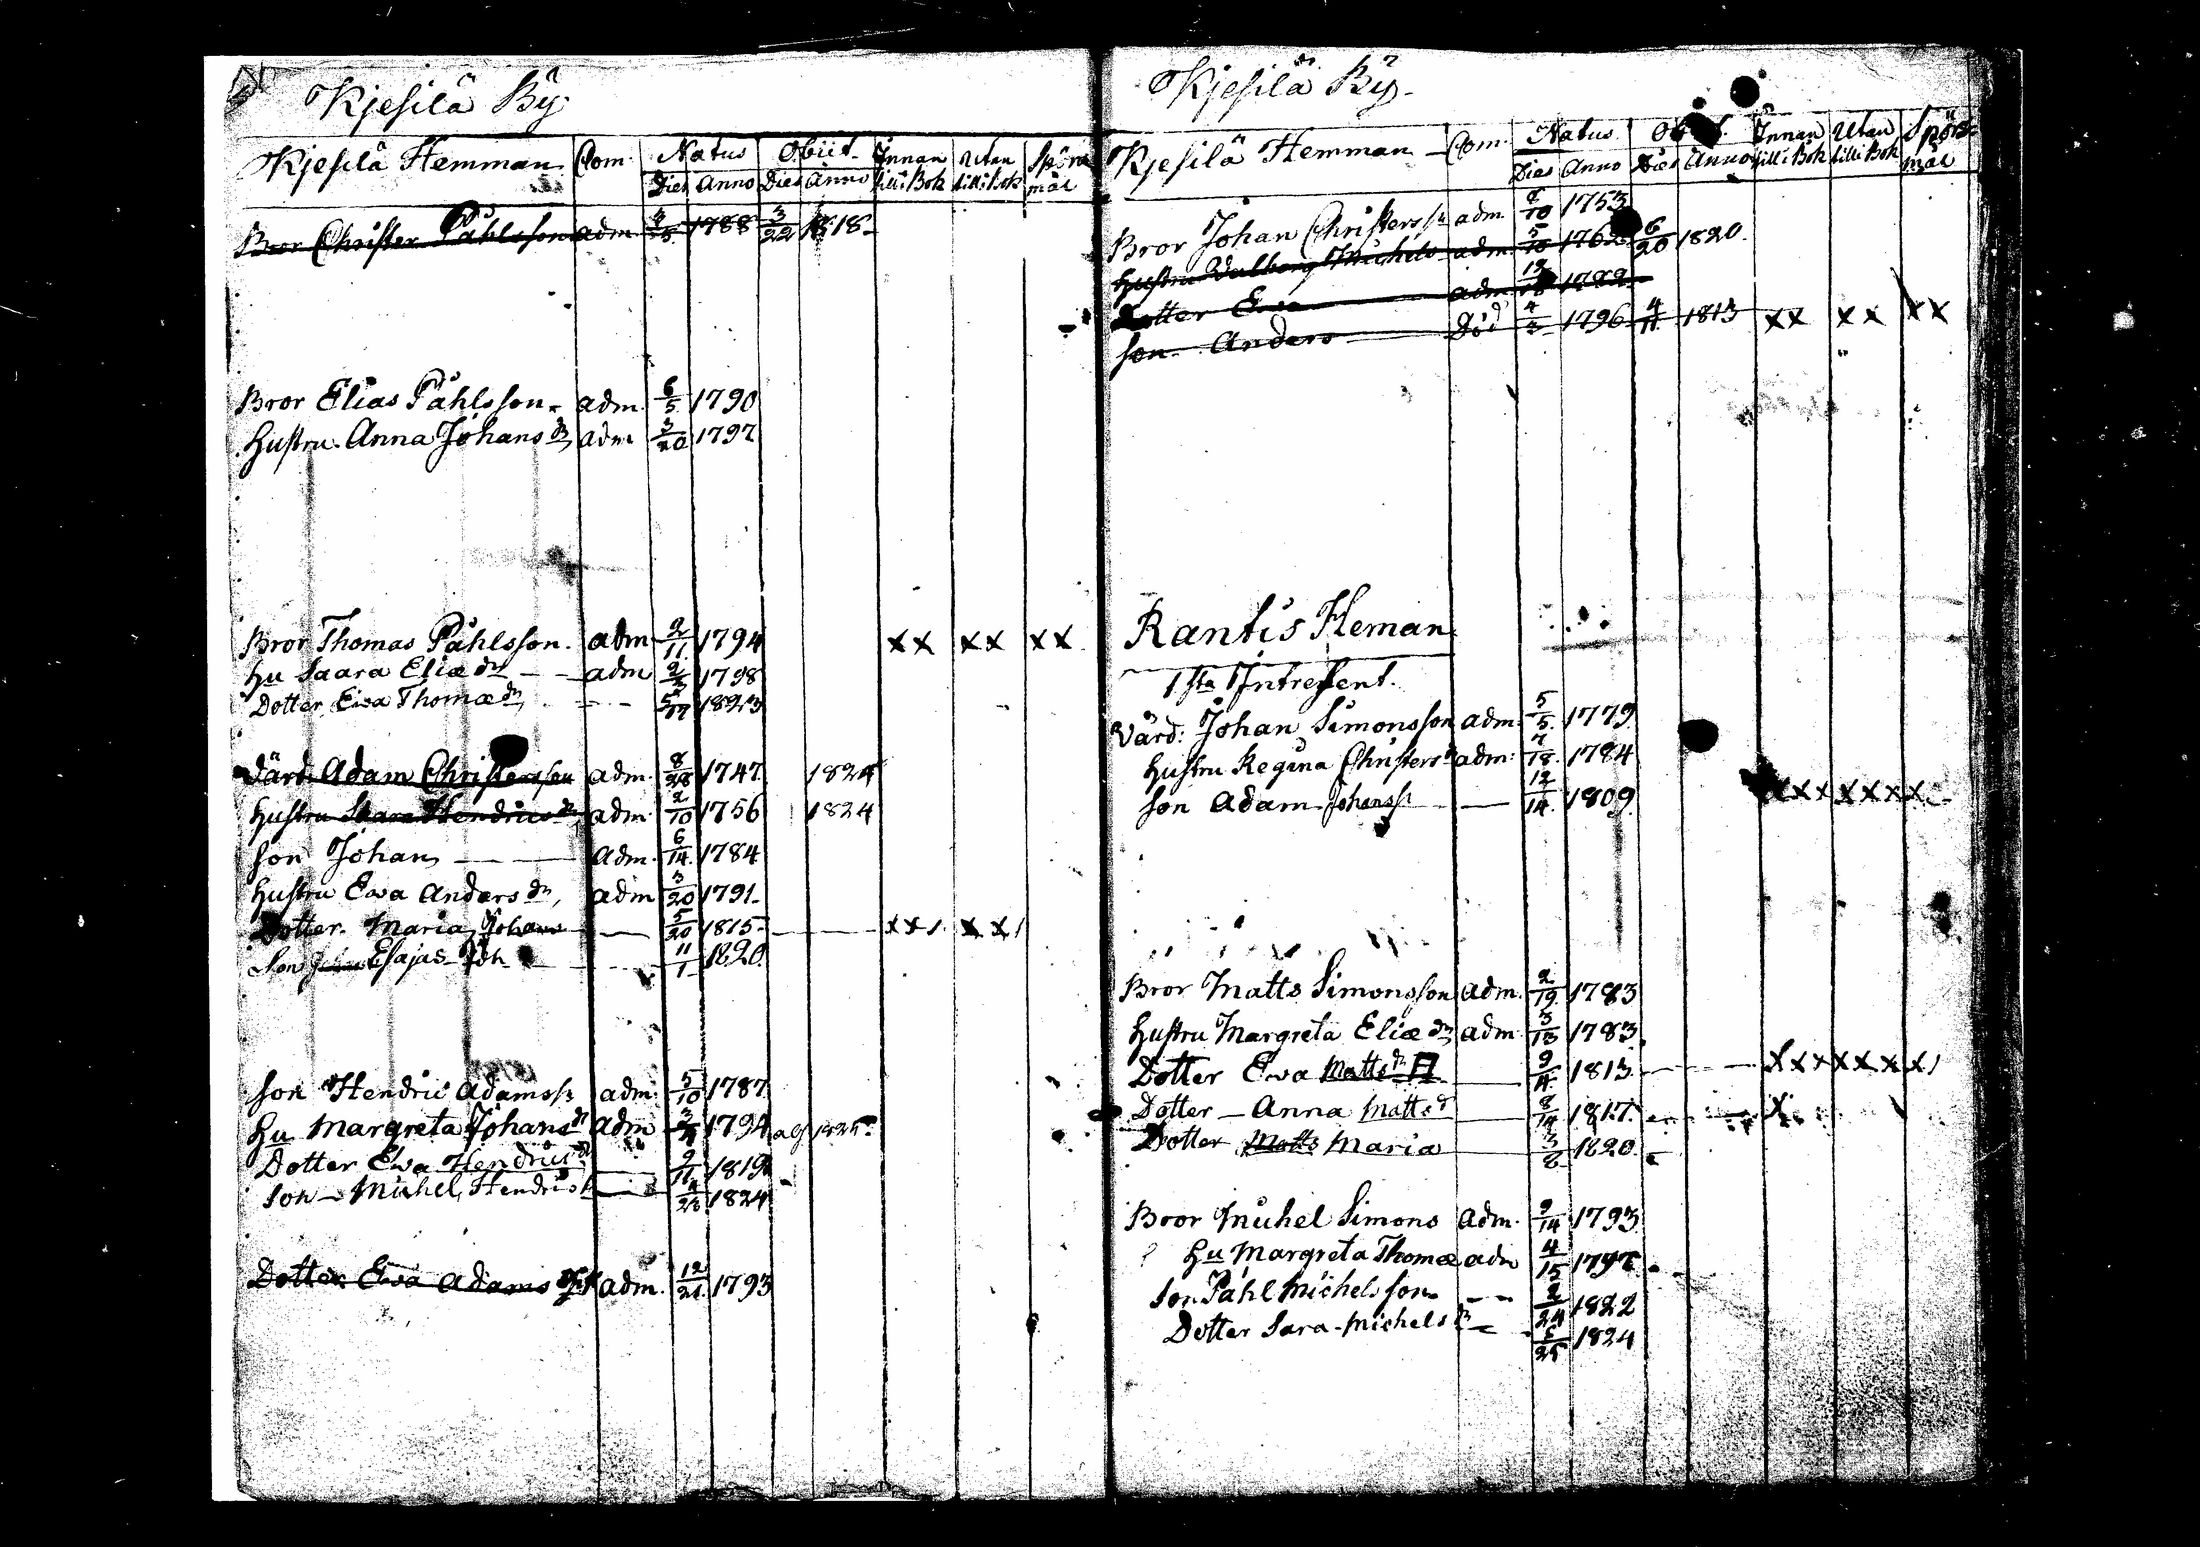 Kjesilä By
Kjesilä Hemman Com. Natus Obiit Innan Utan Spörs
Dies Anno Dies Anno till i Bok till i Bok mål
Bror Christer Påhlsson adm 1788 3/22 1818
Bror Elias Påhlsson adm. 6/5 1790
Hustru Anna Johans dr adm 3/20 1797
Bror Thomas Påhlsson. adm 2/11 1794 xx xx xx
Hu Saara Eliæ dr adm 1798
Dotter Ewa Thomæ dr 1823
Värd. Adam Christersson adm. 8/28 1747 1824
Hustru Saara Hendrics dr adm. 2/10 1756 1824
Son Johan adm. 6/14 1784
Hustru Ewa Anders dr, adm 3/20 1791
Dotter. Maria Johans 5/20 1815 xx/ xx/
Son Esajas Joh 11/1 1820
Son Hendric Adamss. adm. 5/10 1787
Hu Margreta Johans dr adm 1794
Dotter Ewa Hendrics dr 9/11 1819
Son Michel Hendrics 1824
Dotter Ewa Adams adm. 12/21 1793
Kjesilä By
Kjesilä Hemman Com. Natus Innan Utan Spörs
Dies Anno Dies Anno till i Bok till i Bok mål
Bror Johan Christerss. adm 1753
Hustru Walborg Michels adm. 5/10 1762 6/20 1820.
Dotter Ewa adm
Son Anders Död 4/3 1796 4/11 1813 xx xx xx
Rantis Heman
1sta Intressent.
Värd: Johan Simonsson adm. 5/5 1779
Hustru Regina Christers adm: 7/18 1784
Son Adam Johanss. 12/14 1809 xxxxxxx
Bror Matts Simonsson adm. 2/19 1783
Hustru Margreta Eliæ dr adm 3/13 1783
Dotter Ewa Matts dr 1813 xxxxxxx/
Dotter Anna Matts d 8/14 1817 x
Dotter Matts Maria 3/8 1820
Bror Michel Simons adm. 9/14 1793
Hu Margreta Thomæ adm 4/15
Son Påhl Michelsson 2/24 1822
Dotter Sara Michels dr 1824